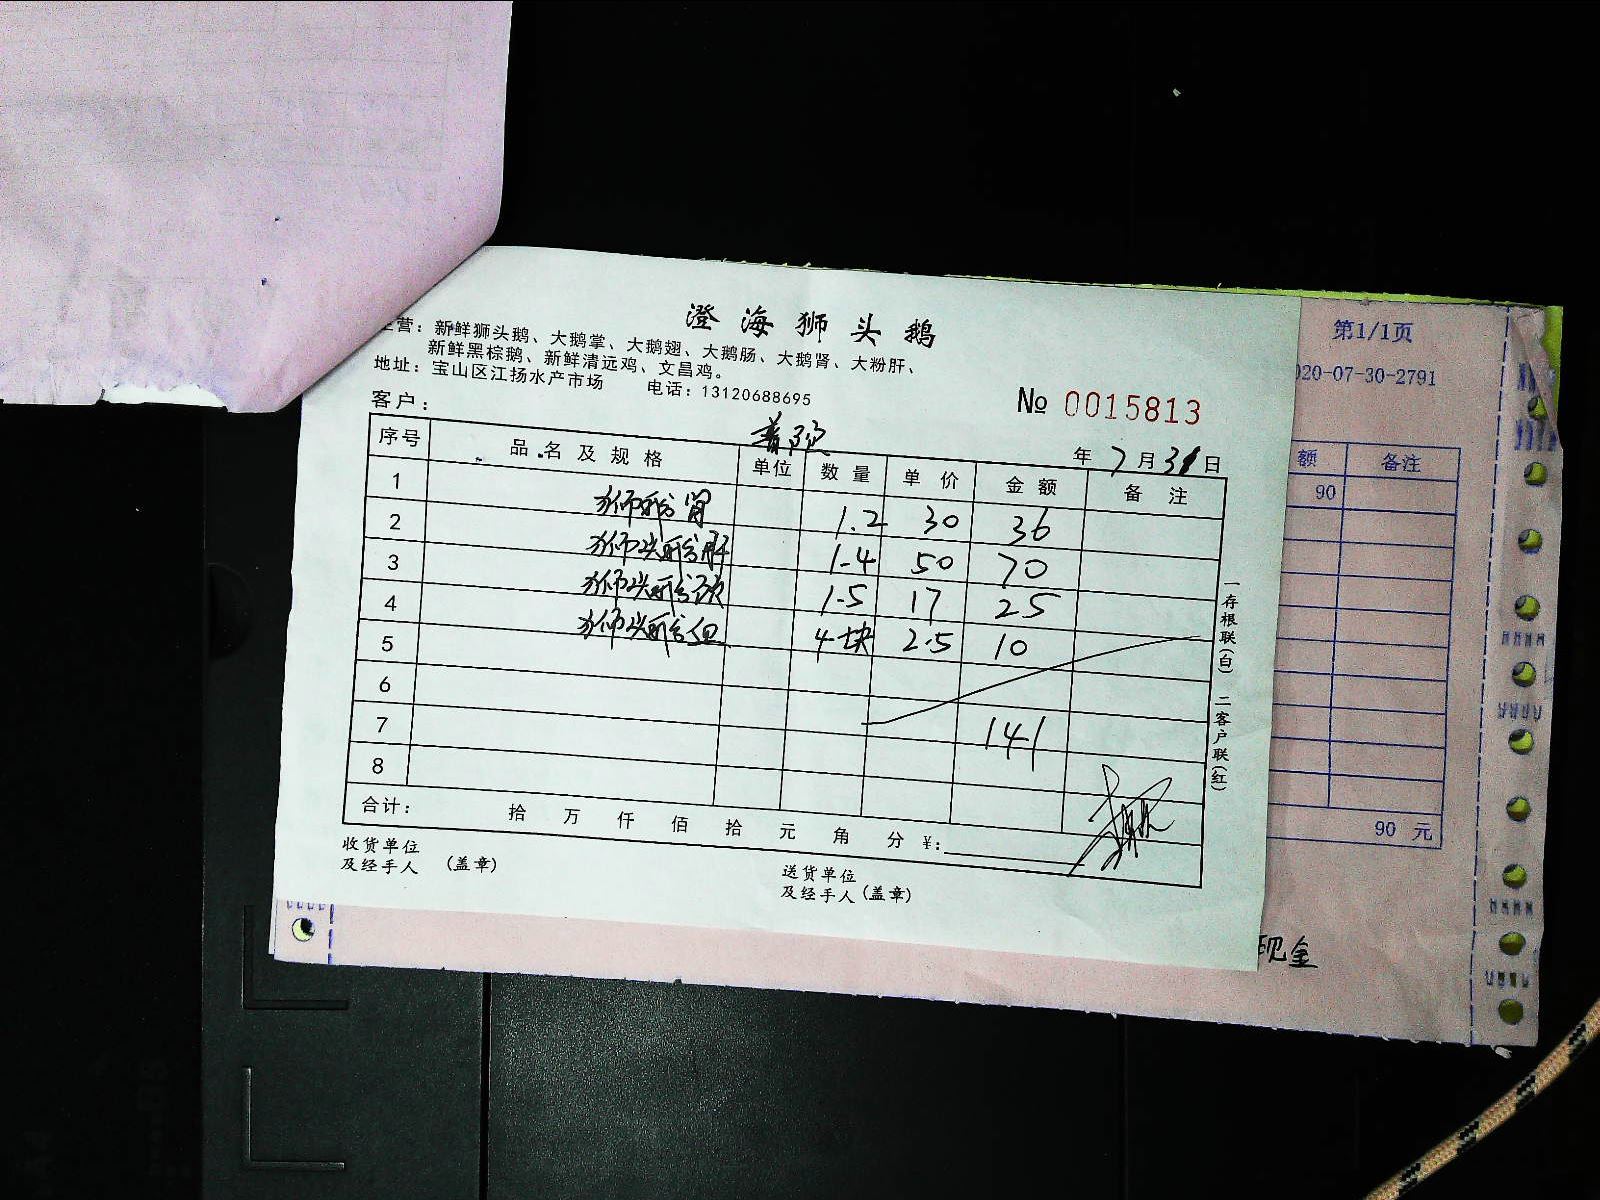 澄海狮头鹅
主营：新鲜狮头鹅、大鹅掌、大鹅翅、大鹅肠、大鹅肾、大粉肝、
新鲜黑棕鹅、新鲜清远鸡、文昌鸡。
地址：宝山区江扬水产市场 电话：13120688695
№ 0015813
客户：
年 7 月 31 日
序号 品名及规格 单位 数量 单价 金额 备注
1 狮鹅肾 1.2 30 36
2 狮头鹅肝 1.4 50 70
3 狮头鹅 1.5 17 25
4 狮头鹅 4块 2.5 10
5
6
7 141
8
合计： 拾 万 仟 佰 拾 元 角 分 ¥：
收货单位
及经手人 （盖章）
送货单位
及经手人（盖章）
一存根联（白） 二客户联（红）
第1/1页
020-07-30-2791
额 备注
90
90 元
现金